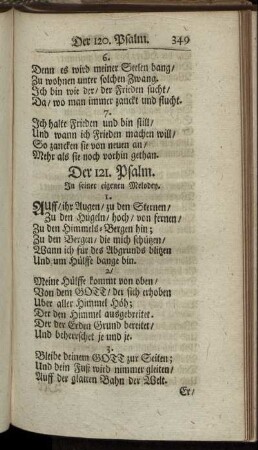 Der 120. Psalm. 349
6.
Denn es wird meiner Seelen bang/
Zu wohnen unter solchen Zwang.
Ich bin wie der/ der Frieden sucht/
Da/ wo man immer zanckt und flucht.
7.
Ich halte Frieden und bin still/
Und wann ich Frieden machen will/
So zancken sie von neuen an/
Mehr als sie noch vorhin gethan.
Der 121. Psalm.
In seiner eigenen Melodey.
1.
Auff/ ihr Augen/ zu den Sternen/
Zu den Hügeln/ hoch/ von fernen/
Zu den Himmels-Bergen hin;
Zu den Bergen/ die mich schützen/
Wann ich für des Abgrunds blitzen
Und um Hülffe bange bin.
2/
Meine Hülffe kommt von oben/
Von dem GOTT/ der sich erhoben
Uber aller Himmel Höh;
Der den Himmel ausgebreitet.
Der der Erden Grund bereitet/
Und beherrschet je und je.
3.
Bleibe deinem GOTT zur Seiten;
Und dein Fuß wird nimmer gleiten/
Auff der glatten Bahn der Welt.
Er/